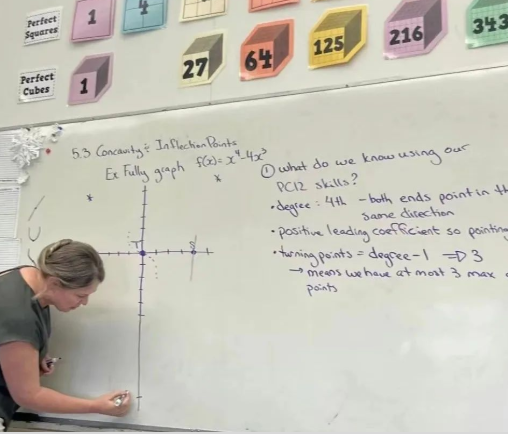 Perfect
Squares
1
4
Perfect
Cubes
1
27
64
125
216
343
5.3 Concavity & Inflection Points
Ex Fully graph f(x) = x⁴-4x³
① what do we know using our
PC12 skills?
• degree : 4th - both ends point in th
same direction
• positive leading coefficient so pointing
• turning points = degree - 1 => 3
→ means we have at most 3 max
points